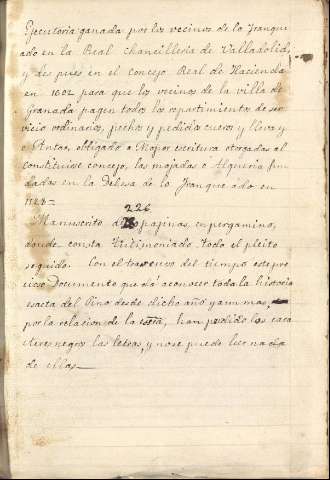 Ejecutoria ganada por los vecinos de lo franque
ado en la Real Chancilleria de Valladolid,
y des pues en el concejo Real de Hacienda
en 1602 para que los vecinos de la villa de
Granada pagen todos los repartimientos de ser
vicio ordinario, pechos y pedido cueros y lleva y
o Antas, obligado a Mojor escritura otorgadas al
constituirse concejo, las majadas o Alqueria fun
dadas en la Dehesa de lo franque ado en
226
Manuscrito de paginas, en pergamino,
donde consta testimoniado todo el pleito
seguido. Con el trascurso del tiempo este pre
cioso Documento que dá a conocer toda la historia
esacta del Pino desde dicho año y aun mas,
por la relacion de la han perdido los cara
cteres negros las letras, y no se puede leer nada
de ellas